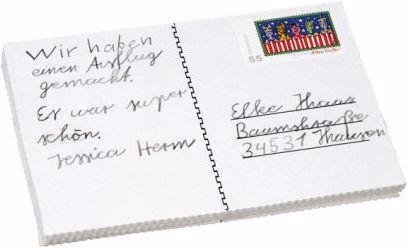 Wir haben
einen Ausflug
gemacht.
Es war super
schön.
Jessica Herm
55
Alles Gute!
Elke Haas
Baumstraße
34531 Hausen